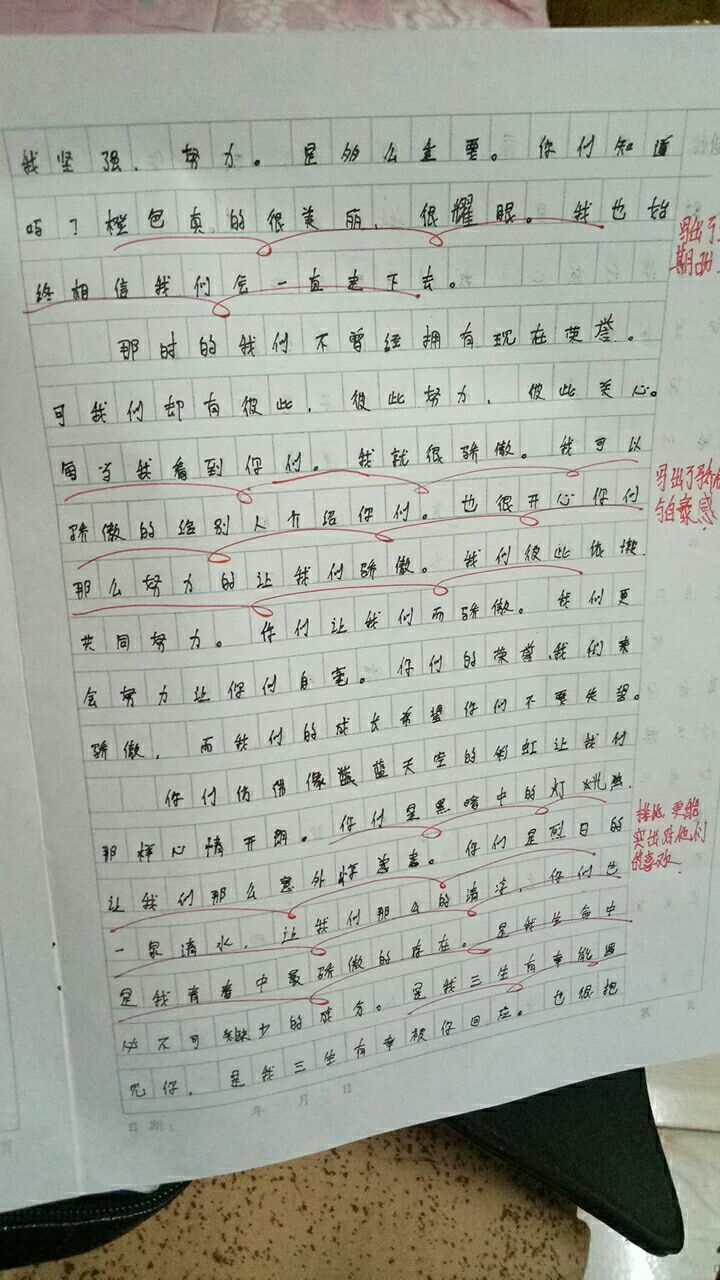 我坚强、努力。是多么重要。你们知道
吗？橙色真的很美丽、很耀眼。我也始
终相信我们会一直走下去。
写出了
期
那时的我们不曾经拥有现在荣誉。
可我们却有彼此，彼此努力，彼此关心。
每当我看到你们。我就很骄傲。我可以
骄傲的给别人介绍你们。也很开心你们
写出了骄傲
与自豪感
那么努力的让我们骄傲。我们彼此
共同努力。你们让我们而骄傲。我们更
会努力让你们自豪。你们的荣誉,我们来
骄傲，而我们的成长希望你们不要失望。
你们仿佛像蓝蓝天空的彩虹让我们
那样心情开朗。你们是黑暗中的灯火光
排比，更能
突出对他们
的喜欢
让我们那么意外惊喜。你们是烈日的
一泉清水，让我们那么的清凉，你们也
是我青春中最骄傲的存在。是我生命中
必不可缺少的成分。是我三生有幸能遇
见你，是我三生有幸被你回应。也很抱
日期： 年 月 日
第 页
页